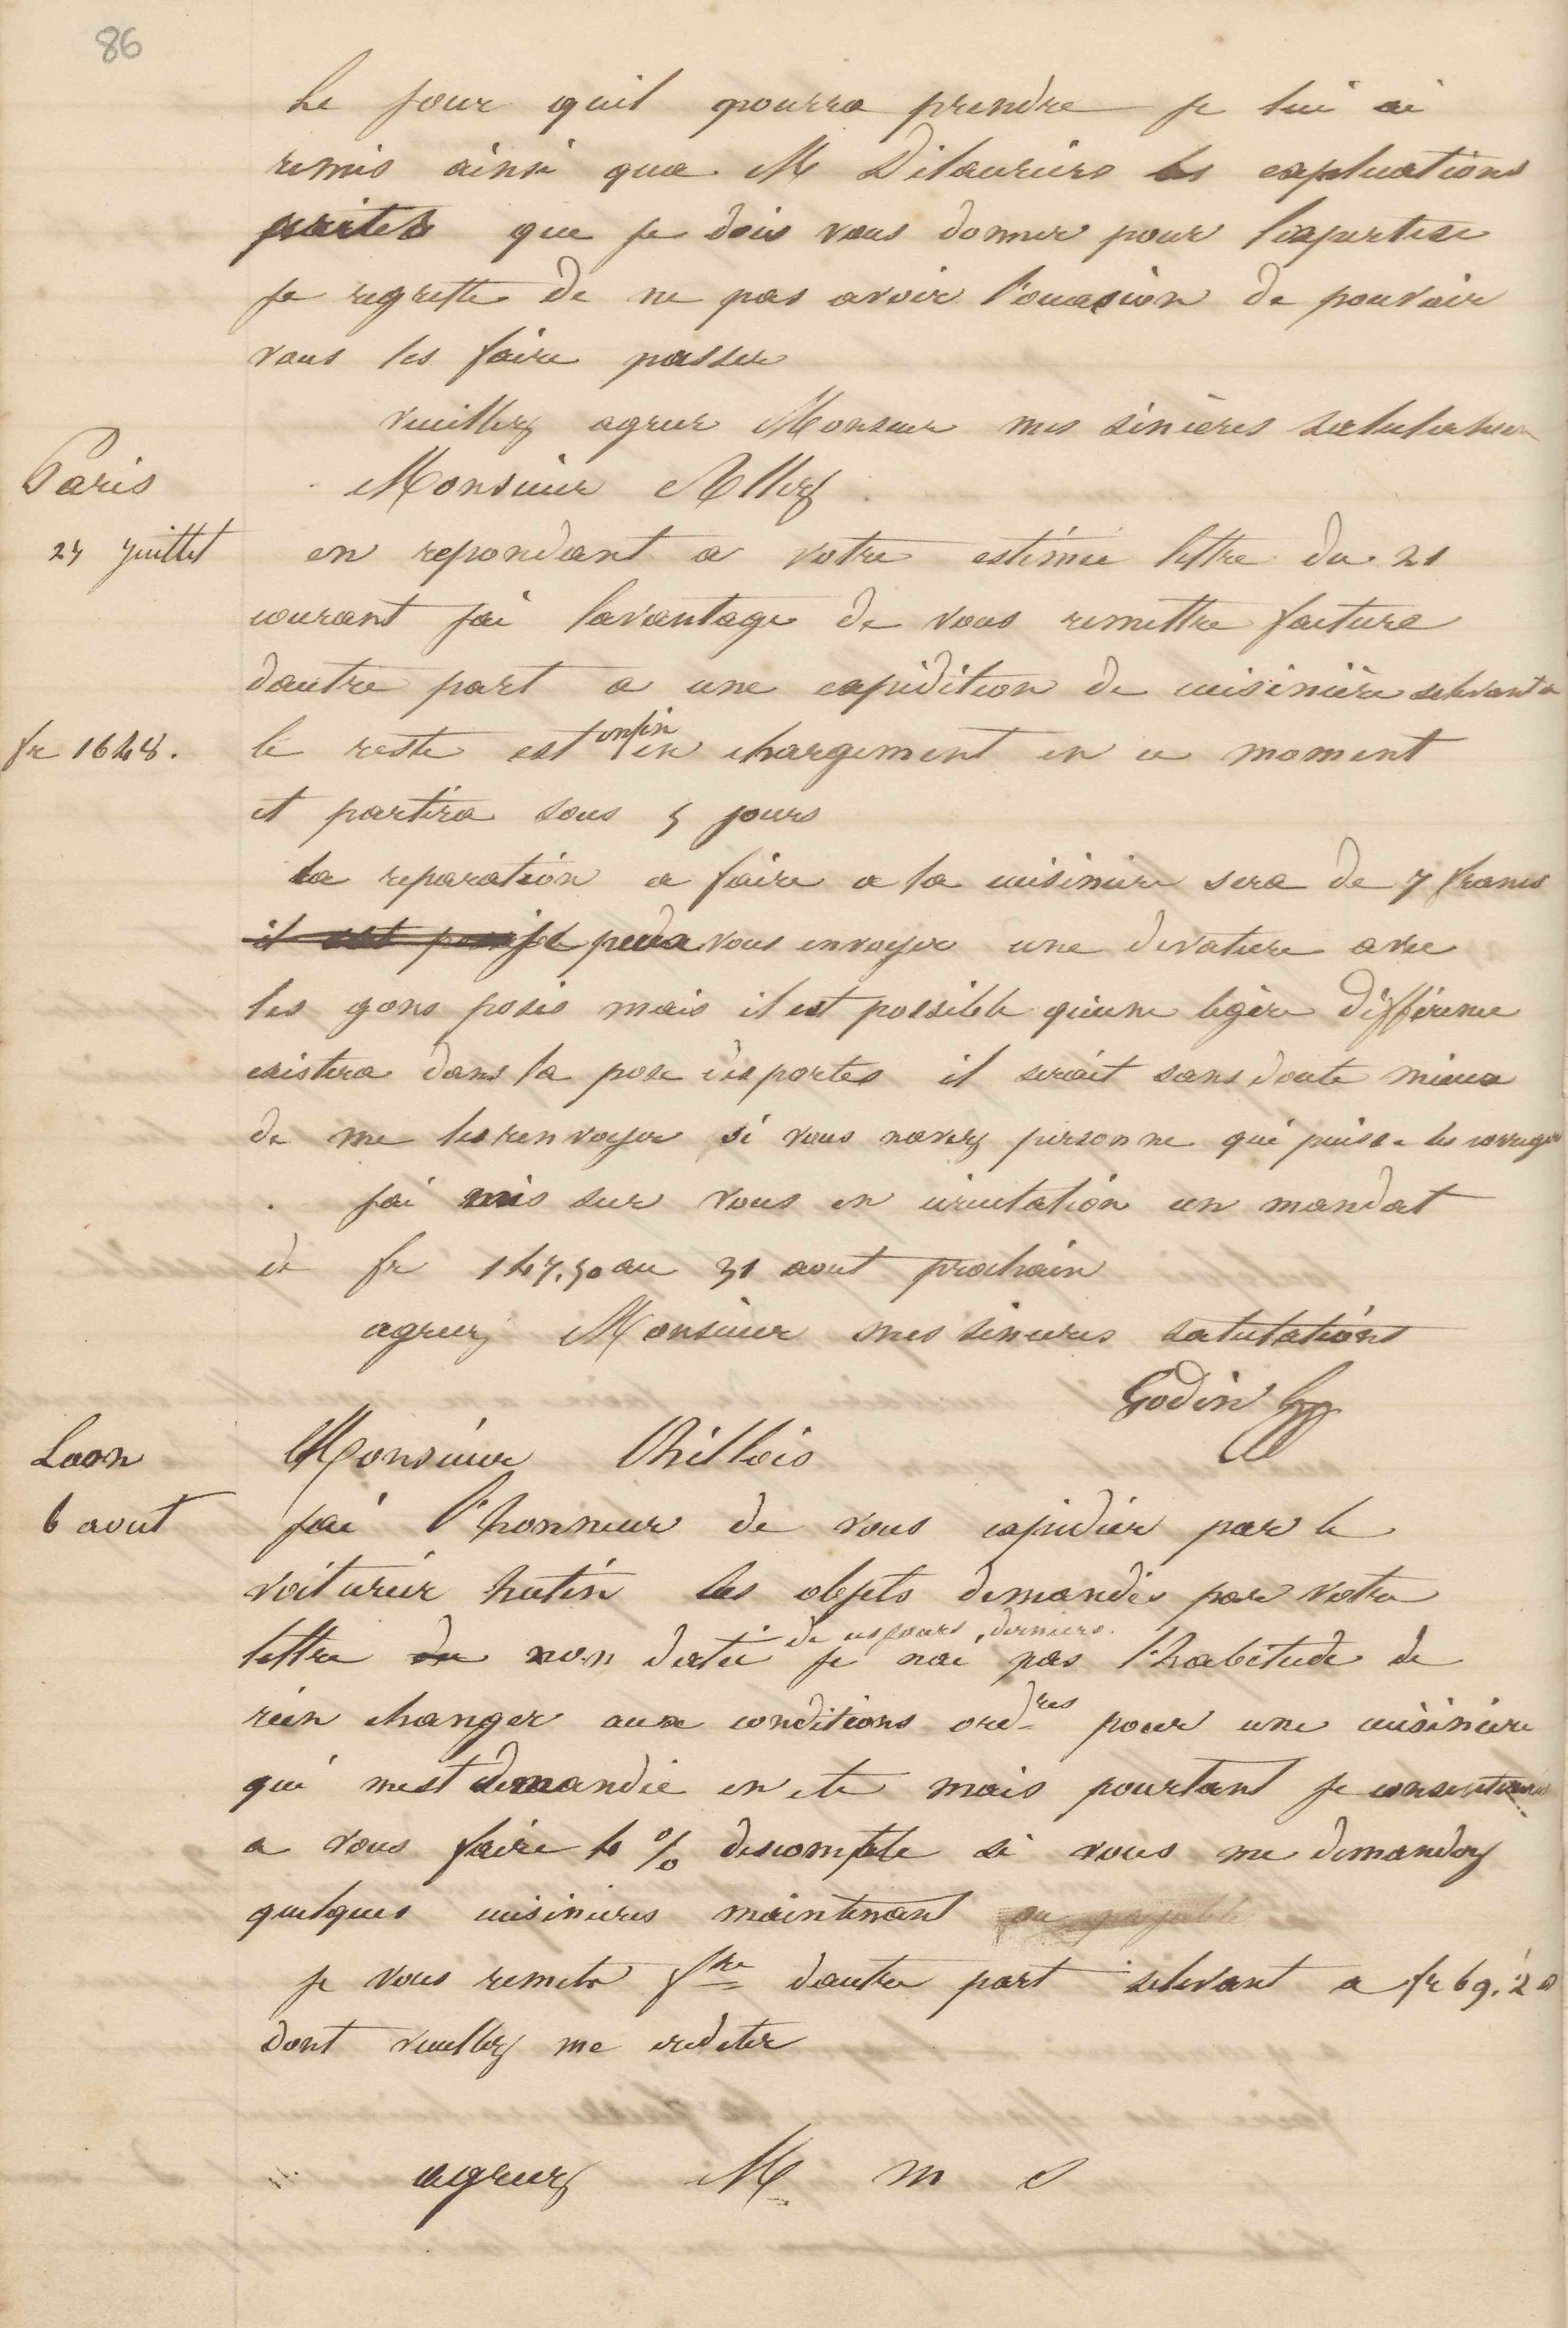 86
le jour quil pourra prendre je lui ai
remis ainsi qua M Delauriers les explications
ecrites que je dois vous donner pour lexpertise
je regrette de ne pas avoir l'ouasion de pouvoir
vous les faire passer
veuillez agreer Monsieur mes sinières salutations
Paris Monsieur Allez
24 Juillet en repondant a votre estimée lettre du 21
courant jai lavantage de vous remettre facture
dautre part a une expédition de cuisinière selevant a
fr 1648. le reste est enfin en chargement en ce moment
et partira sous 5 jours
la reparation a faire a la cuisiniere sera de 7 francs
je vous envoyer une devature avec
les gons posés mais il est possible quune legère différence
existera dans la pose des portes il seriait sans doute mieux
de me les renvoyer si vous navez personne qui puisse les corriger
jai mis sur vous en circulation un mandat
de fr 147.50 au 31 aout prochain
agreez Monsieur mes sinceres salutations
Godin
Laon Monsieur Chillois
6 aout jai l'honneur de vous expedier par le
voiturier hutin les objets demandés par votre
lettre du non datée de ces jours derniers. je nai pas l'habitude de
rien changer aux conditions ord.res pour une cuisiniere
qui mest demandée en ete mais pourtant je
a vous faire 4 % descompte si vous me demandez
quelques cuisinieres maintenant
je vous remets fre dautre part selevant a fr 69.20
dont veuillez me crediter
agreez M m s